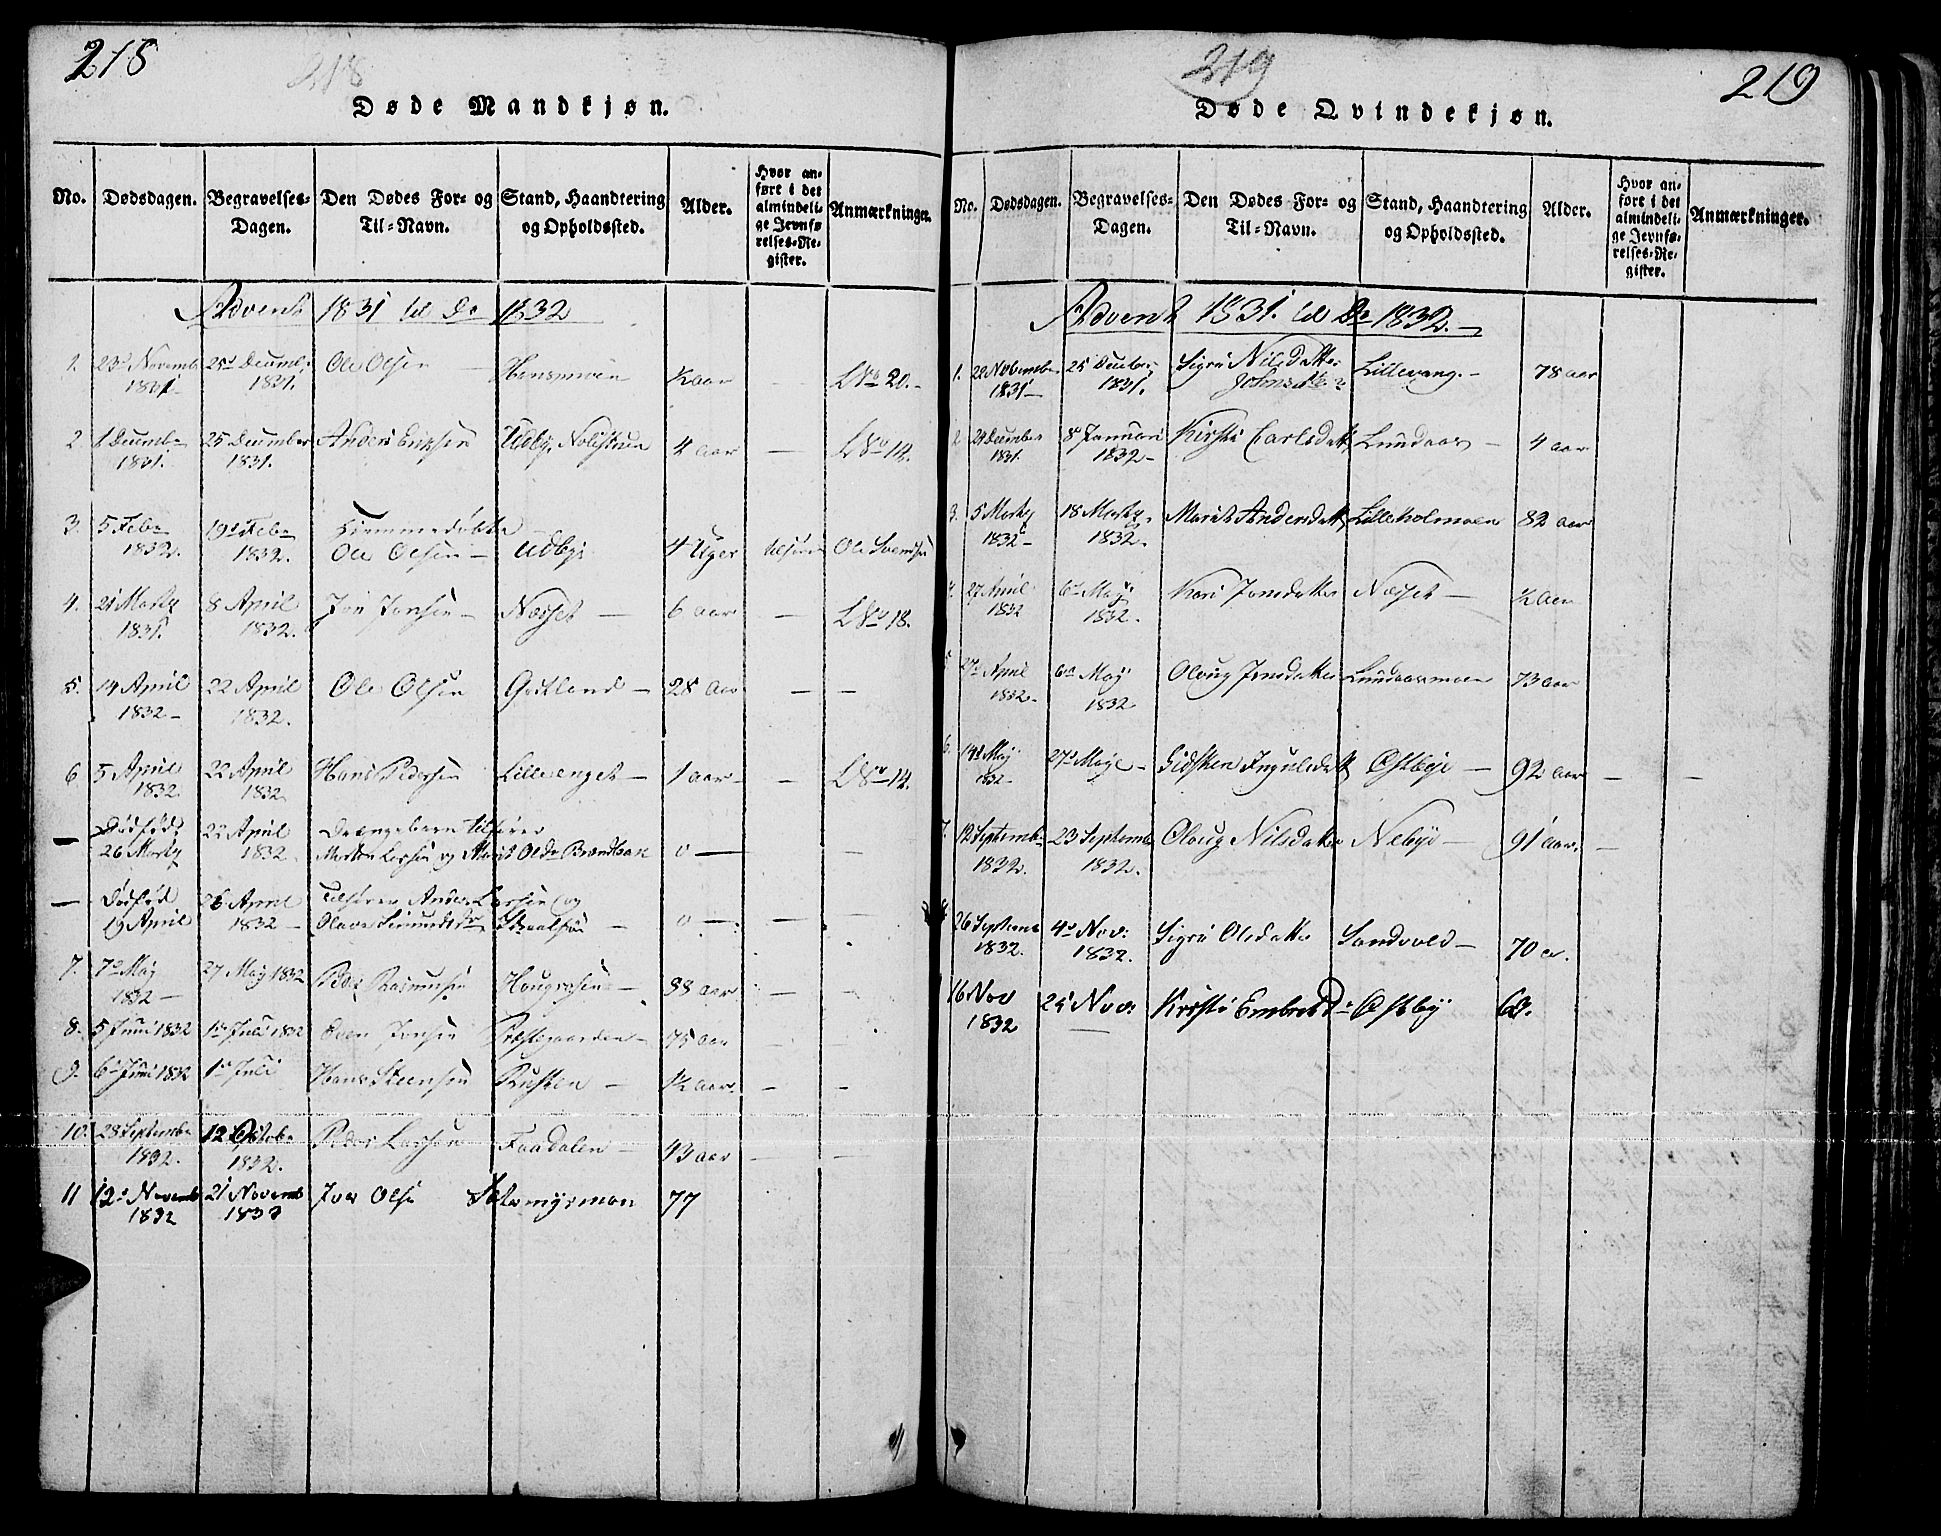 218
218
Døde Mandkjøn.
No. Dødsdagen. Begravelses-Dagen. Den Dødes For- og Til-Navn. Stand, Haandtering og Opholdssted. Alder. Hvor anført i det almindelige Jevnførelses-Register. Anmærkninger.
Advent 1831 til Do 1832
1. 23d Novemb 1831 25d Decemb: 1831. Ole Olsen Hansmoen ½ aar — LNo 20.-
2. 1 Decembr 1831. 25 December 1831. Anders Ericksen Udby 4 aar — LNo 14.
3. 5 Febr 1832. 19d Febr 1832. Hiemmedøbte
Ole Olsen — Udbye 4 Uger tilføres Ole Svendsen
4. 21 Marty 1831. 8 April 1832. Jon Jonsen — Næsset — 6 aar — LNo 18.
5. 14 April 1832 — 22 April 1832. Ole Olsen Gotland — 28 Aar — —
6 5 April 1832. 22 April 1832. Hans Pedersen Lilleenget — 1 aar — — LNo 14.
— Dødfød 26 Marty 22 April 1832. Drengebarn tilfører
Morten Larsen og Marit Olsdr Brændbak 0 — —
— Dødfød 19 April 26 April 1832 — tilfører Anders Larsen og
0 — — —
7. 7d May 1832 — 27 May 1832 Peder Rasmusen 88 aar — —
8. 5 Juni 1832 1ste Juli 1832 Even Jonsen Præstgaarden — 75 aar — —
9. 6d Juni 1832 1ste Juli Hans Steensen Rusten — 1½ aar. — —
10. 28 Septembr 1832. 12 Octobr 1832. Peder Larsen Faadalen — 43 aar — —
11 12d Novemb 1832 21 Novemb 1832 Iver Olse Sætermyrmoen 77
219
219
Døde Qvindekjøn.
No. Dødsdagen. Begravelses-Dagen. Den Dødes For- og Til-Navn. Stand, Haandtering og Opholdssted. Alder. Hvor anført i det almindelige Jevnførelses-Register. Anmærkninger.
Advent 1831. til Do 1832. —
1. 29 Novembr 1831 — 25 Decembr: 1831. Sigri Nilsdatter
Johnsdatter? Lillevang. — 78 aar
2 21 December 1831. 8d Januari 1832 — Kirsti Carlsdatt Lundaas — 4 aar
3. 5 Marty 1832 — 18 Marty 1832. Marit Andersdatt Lilleholmoen 82 aar
4. 27 April 1832 6d May 1832. Kari Jonsdatter Næsset — ½ Aar
5. 27d April 1832. 6d May 1832 Oloug Jonsdatter Lundaasmoen 73 aar
6. 14d May 1832 — 27d Maye — Sidsken Ingulsdatt Østbye — 92 aar — —
7. 12 Septembr 1832. 23 Septemb 1832. Oloug Nilsdatter Nebye — 91 aar. —
26 Septemb 1832. 4d Nov: 1832. Sigri Olsdatter Sandvold — 70 a.
16 Nov 1832 25 Nov: Kirsti Embretsd: Østby 69.